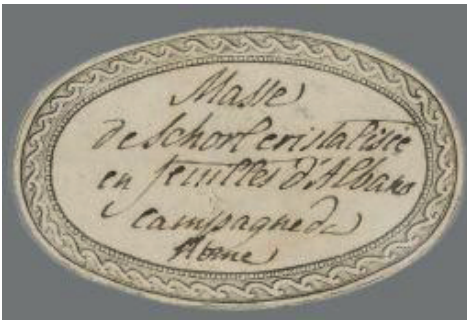 Masse
de Schorl cristalisée
en feuilles d'Albano
campagne de
Rome